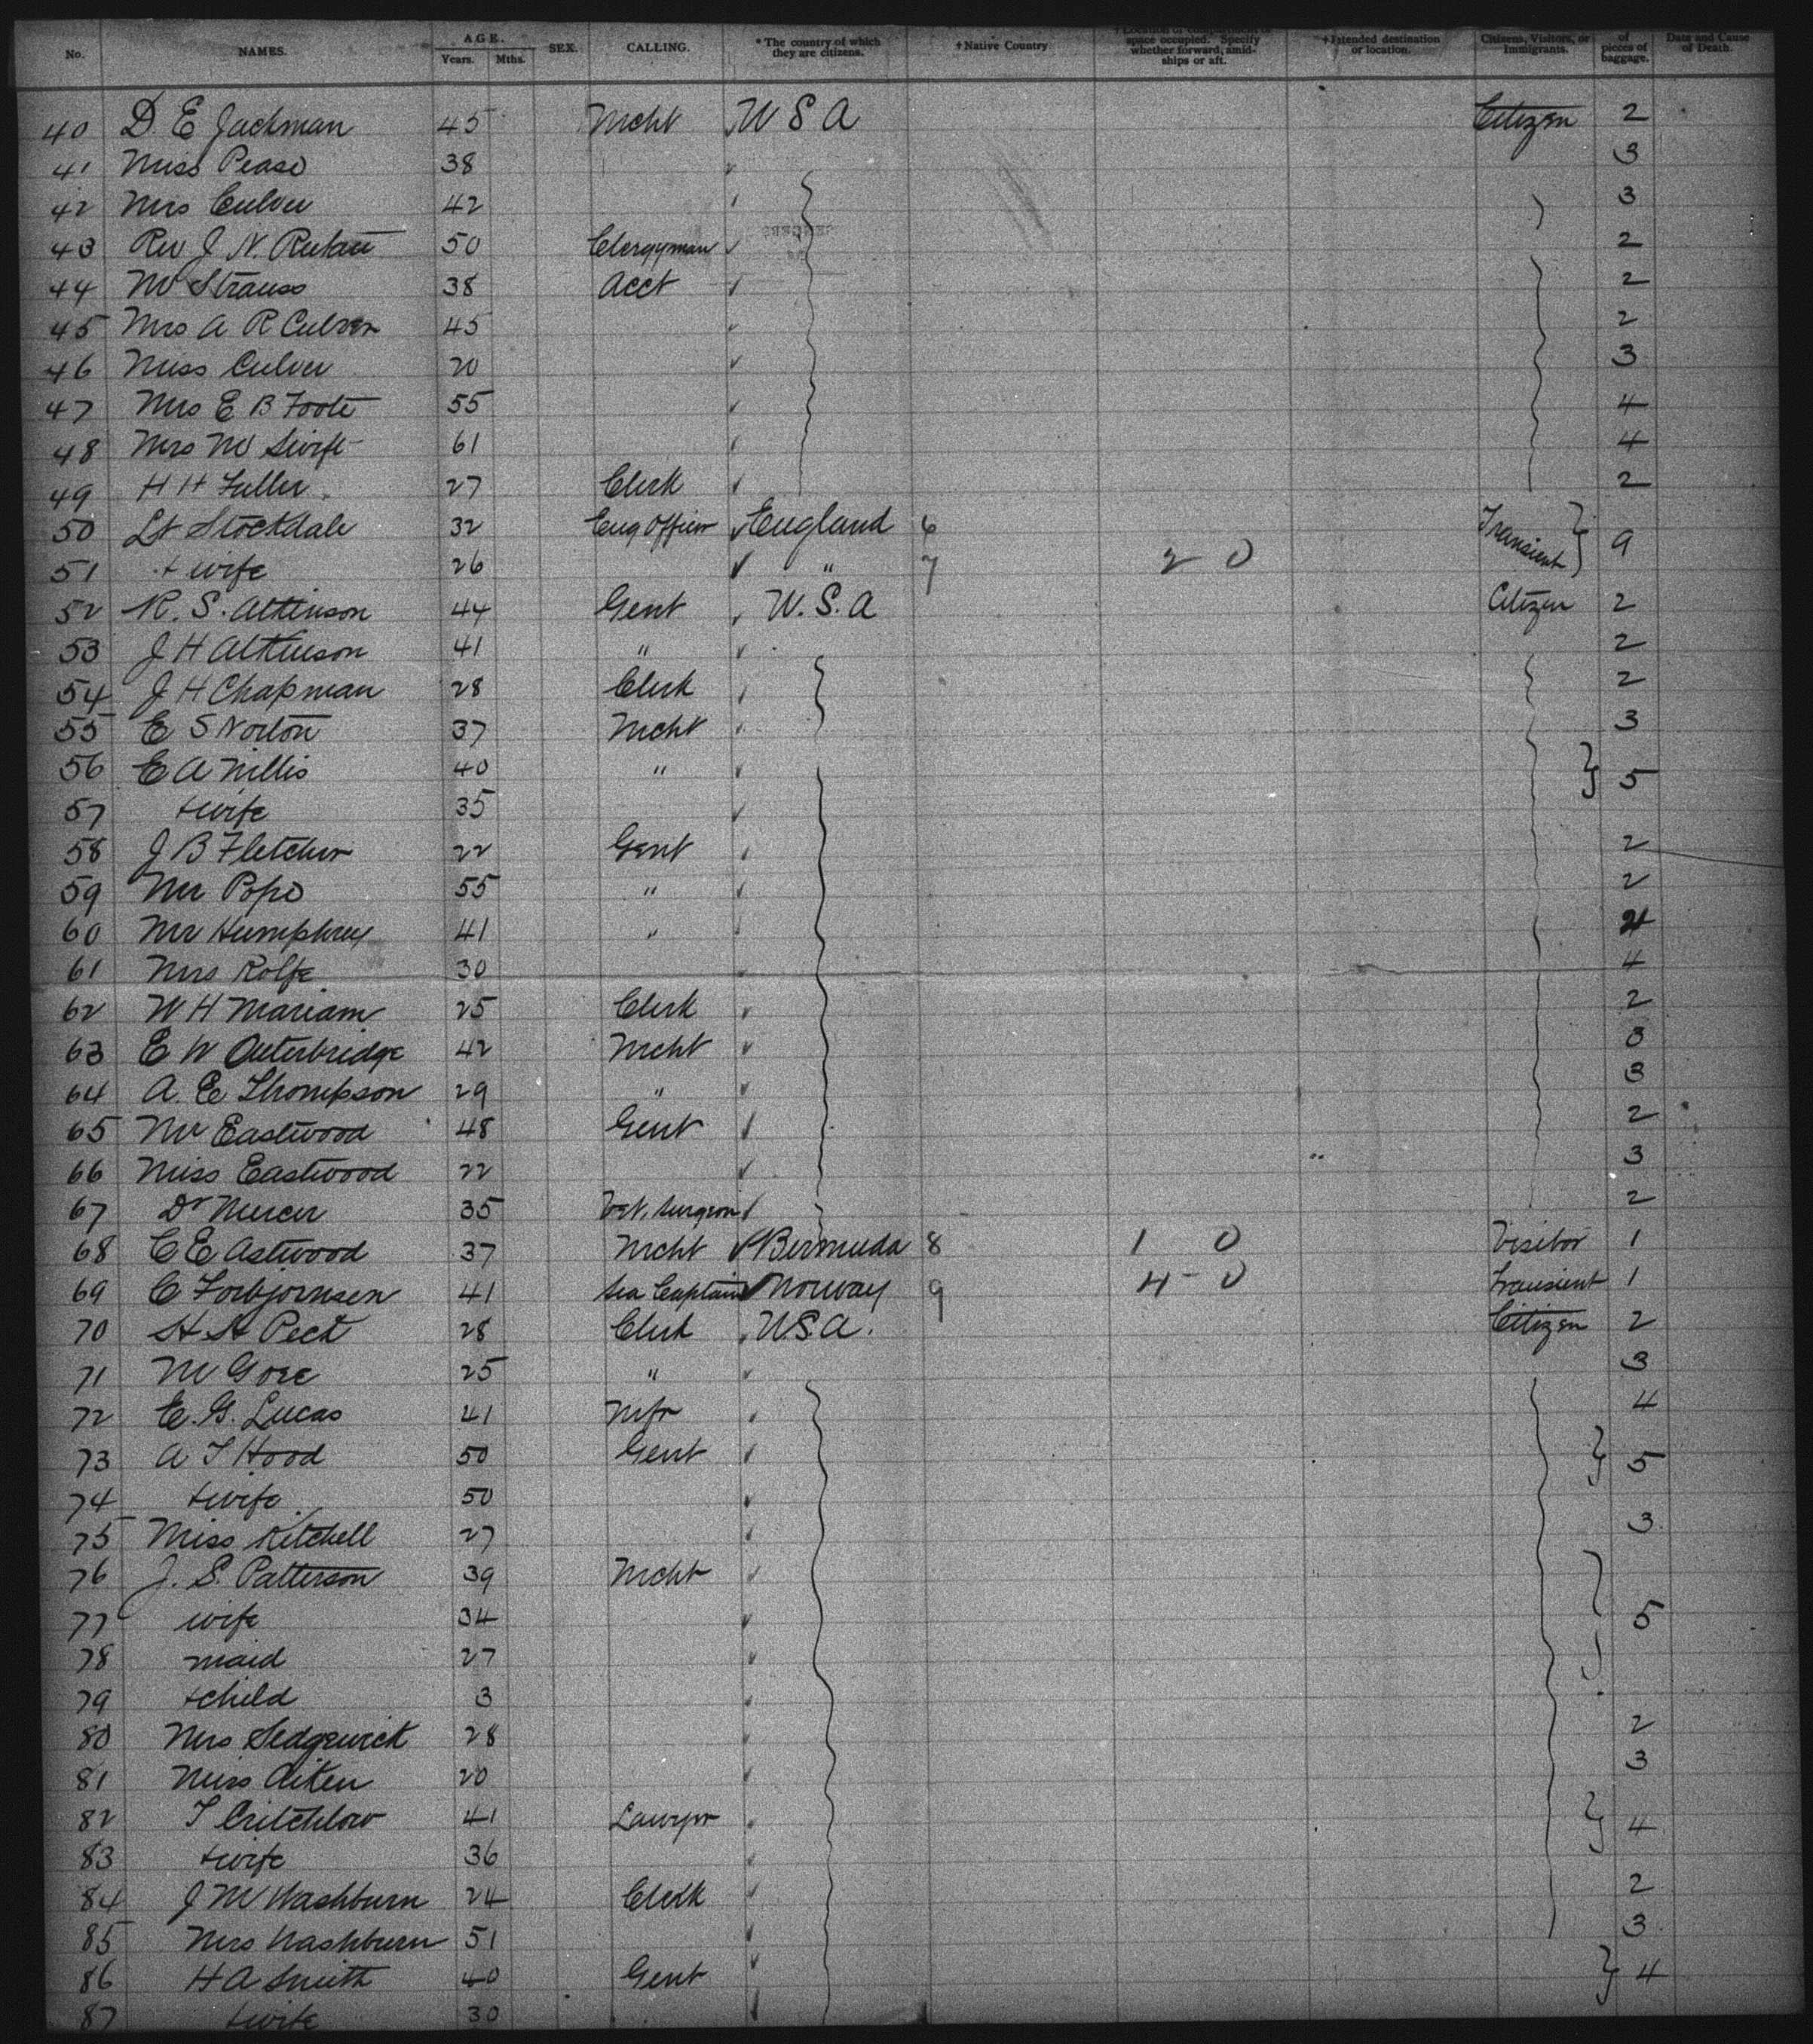 No. NAMES. AGE. Years. Mths. SEX. CALLING. * The country of which they are citizens. † Native Country † Location of compartment or space occupied. Specify whether forward, amidships or aft. † Intended destination or location. Citizens, Visitors, or Immigrants. of pieces of baggage. Date and Cause of Death.
40 D. E Jackman 45 Mcht U S A Citizen 2
41 Miss Pease 38 3
42 Mrs Culver 42 3
43 Rev J. N. 50 Clergyman 2
44 M Strauss 38 Acct 2
45 Mrs A R Culver 45 2
46 Miss Culver 20 3
47 Mrs E B Foote 55 4
48 Mrs M Swift 61 4
49 H H Fuller 27 Clerk 2
50 Lt Stockdale 32 Eng Officer England 6 Transient 9
51 + wife 26 " 7 2 0
52 R. S. Atkinson 44 Gent U. S. A Citizen 2
53 J H Atkinson 41 " 2
54 J H Chapman 28 Clerk 2
55 E S Norton 37 Mcht 3
56 E A Willis 40 " 5
57 + wife 35
58 J B Fletcher 22 Gent 2
59 Mr Pope 55 " 2
60 Mr Humphrey 41 "
61 Mrs Rolfe 30 4
62 W H Mariam 25 Clerk 2
63 E W Outerbridge 42 Mcht 3
64 A. E Thompson 29 " 3
65 Mr Eastwood 48 Gent 2
66 Miss Eastwood 22 3
67 Dr Mercer 35 Vet. Surgeon 2
68 C E Astwood 37 Mcht Bermuda 8 1 0 Visitor 1
69 C Torbjornsen 41 Sea Captain Norway 9 4 - 0 Transient 1
70 H H Peck 28 Clerk U.S.A. Citizen 2
71 M Gore 25 " 3
72 E. G. Lucas 41 Mfr 4
73 A T Hood 50 Gent 5
74 + wife 50
75 Miss Kitchell 27 3
76 J. S. Patterson 39 Mcht
77 wife 34 5
78 maid 27
79 + child 3
80 Mrs Sedgewick 28 2
81 Miss Aiken 20 3
82 T Critchlow 41 Lawyer 4
83 + wife 36
84 J M Washburn 24 Clerk 2
85 Mrs Washburn 51 3
86 H A Smith 40 Gent 4
87 + wife 30